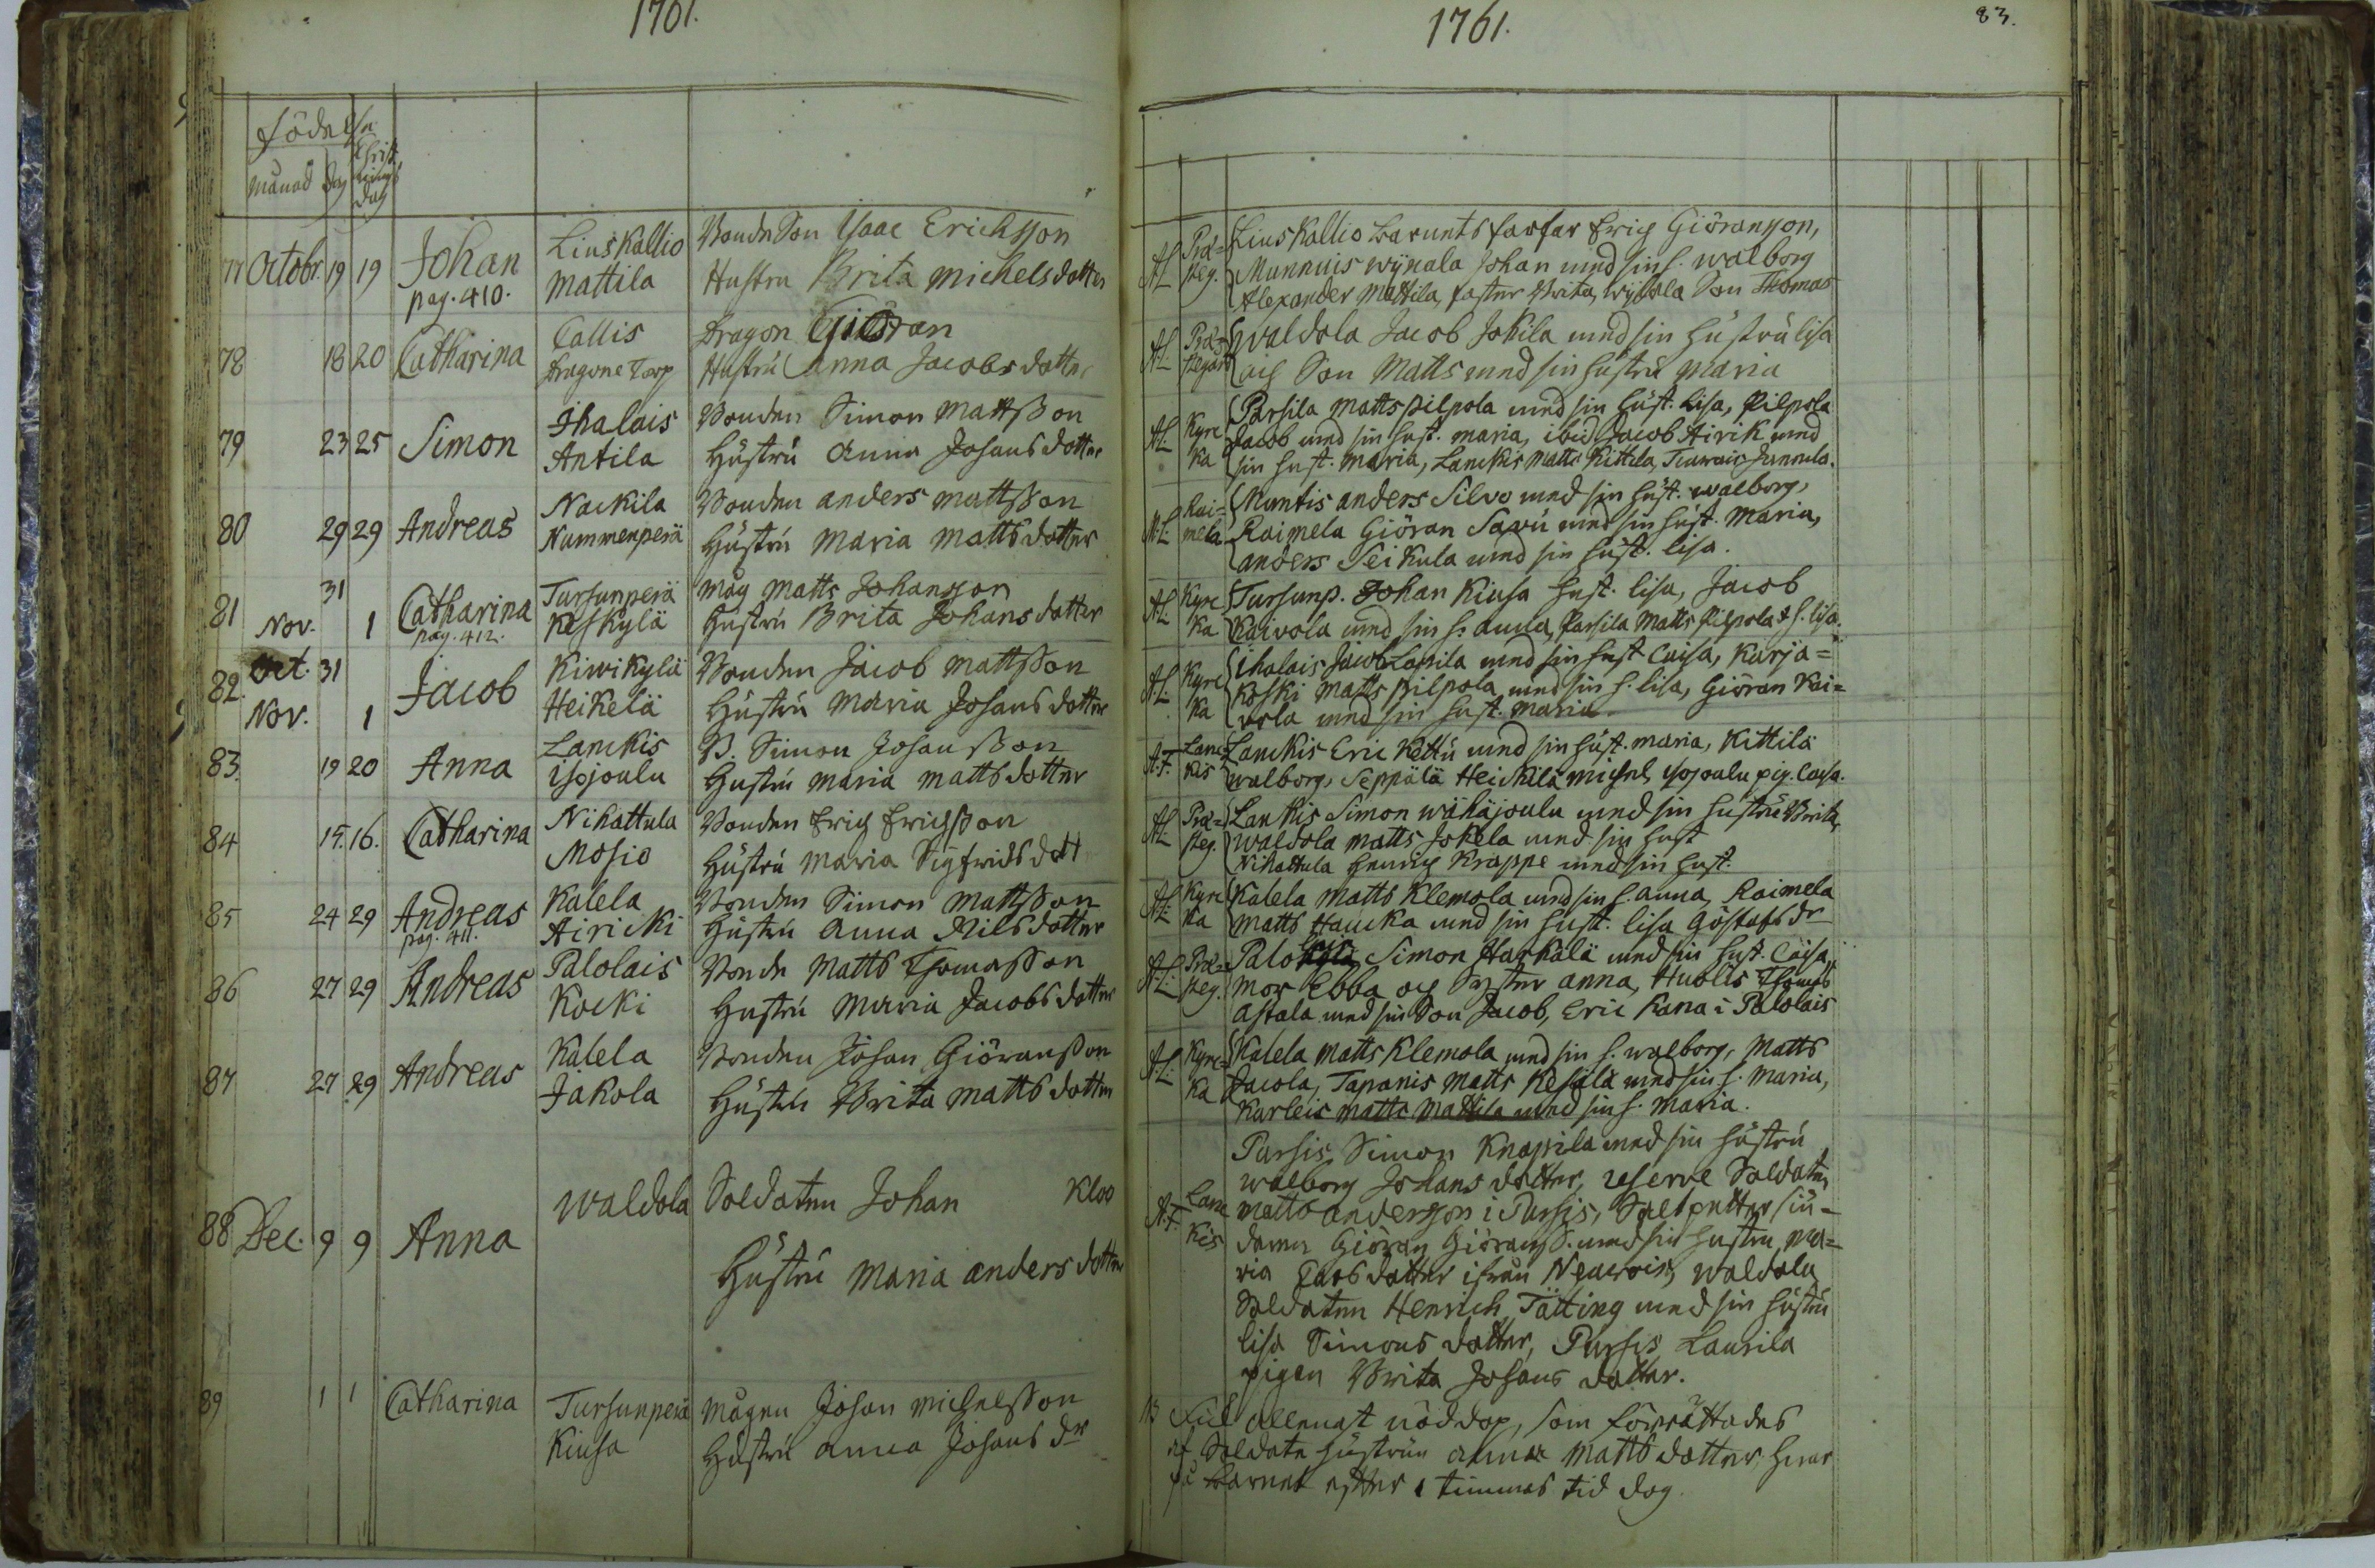 1761.
födelse
månad dag Christ nings dag
77 Octobr. 19 19 Johan Liuskallio BondeSon Isaac Erichsson
pag. 410. Mattila Hustru Brita Michelsdotter
78 18 20 Catharina Callis Dragon Giöran
Dragone Torp Hustru Anna Jacobsdotter
79 23 25 Simon Ihalais Bonden Simon Mattsson
Antila Hustru Anna Johansdotter
80 29 29 Andreas Nackila Bonden anders Mattsson
Nummenperä Hustru Maria Mattsdotter
81 31 Catharina Tursunperä Måg Matts Johansson
Nov. 1 pag. 412. Keskylä Hustru Brita Johansdotter
82. Oct. 31 Jacob Kiwikylä Bonden Jacob Mattsson
Nov. 1 Heikelä Hustru Maria Johansdotter
83. 19 20 Anna Lanckis B. Simon Johansson
isojoulu Hustru Maria Mattsdotter
84 15. 16. Catharina Nihattula Bonden Erich Erichsson
Mosio Hustru Maria Sigfridsdott
85 24 29 Andreas Kalela Bonden Simon Mattsson
pag. 411. Airicki Hustru Anna Nilsdotter
86 27 29 Andreas Palolais Bonde Matts Thomasson
Kocki Hustru Maria Jacobsdotter
87 27 29 Andreas Kalela Bonden Johan Giöransson
Jakola Hustru Brita Mattsdotter
88 Dec. 9 9 Anna Waldola Soldaten Johan Kloo
Hustru Maria andersdotter
89 1 1 Catharina Tursunperä Mågen Johan Michelsson
Kiusa Hustru Anna Johans dr
1761. 83.
A.L. Præ= Liuskallio barnets farfar Erich Giöransson,
steg. Munnuis wÿnala Johan med sin h. walborg
Alexander Mattila, faster Brita, Son Thomas
A.L. Præ= Waldola Jacob Jokila med sin hustru lisa
stegård och Son Matts med sin hustru Maria
A.L. Kyrc Parsila Matts Pilpola med sin hust. Lisa, Pilpola
ka Jacob med sin hust. Maria, ibid Jacob Airik med
sin hust. Maria, Lanckis Matts Kittila,
A.L. Rai= Muntis anders Silvo med sin hust. walborg,
mela Raimela Giöran Savu med sin hust. Maria,
anders Seikula med sin hust. lisa.
A.L. Kyrc Tursunp. Johan Kiusa hust. lisa, Jacob
ka Kaivola med sin h. anna, Parsila Matts Pilpola & h. lisa.
A.L. Kyrc ihalais Jacob Lassila med sin hust Caisa, Karja=
ka koski Matts Pilpola med sin h. lisa, Giöran Kai=
vola med sin hust. Maria
A.F. Lanc Lanckis Eric Kettu med sin hust. Maria, Kittilä
kis walborg, Seppälä Heickilä Michel, isojoulu pig. Caisa.
A.L. Præ= Lankis Simon wähäjoulu med sin hustru Brita,
steg. Waldola Matts Jokela med sin hust
Nihattula Henrich Krappe med sin hust.
A.L. Kyrc Kalela Matts Klemola med sin h. anna, Raimela
ka Matts Haucka med sin hust. lisa Göstafs dr
A.L. Præ= Palo Simon Harkälä med sin hust. Caisa,
steg. mor Ebba och Syster anna, Huolis Thomas
Astala med sin Son Jacob, Eric Kana i Palolais
A.L. Kyrc= Kalela Matts Klemola med sin h. walborg, Matts
ka Jacola, Tapanis Matts Kesälä med sin h. Maria,
Karleis Matts Mattila med sin h. Maria.
Pursis Simon Knapila med sin hustru
walborg Johans dotter, reserve Soldaten
A.F. Lanc Matts andersson i Pursis, Saltpetter siu=
kis daren Giöran Giöranss. med sin hustru Ma=
ria Larsdotter ifrån waldola
Soldaten Henrich Tätting med sin hustru
lisa Simons dotter, Pursis Laurila
pigan Brita Johans dotter.
NB Fick allenast nöddop, som förrättades
af Soldate hustrun anna Matts dotter hvar
på barnet efter 1 timmas tid dog.